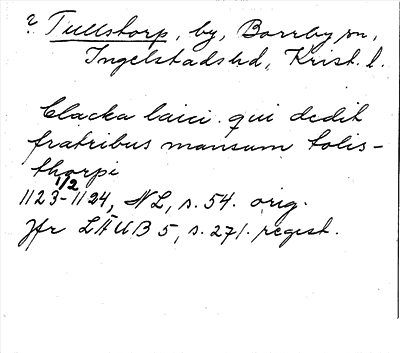 ? Tullstorp, by, Borrby sn,
Ingelstads hd, Krist. l.
Clacka laici qui dedit
fratribus mansum tolis-
thorpi
1123-1/2 1124, NL, s. 54. orig.
Jfr LÄUB 5, s. 271. regist.